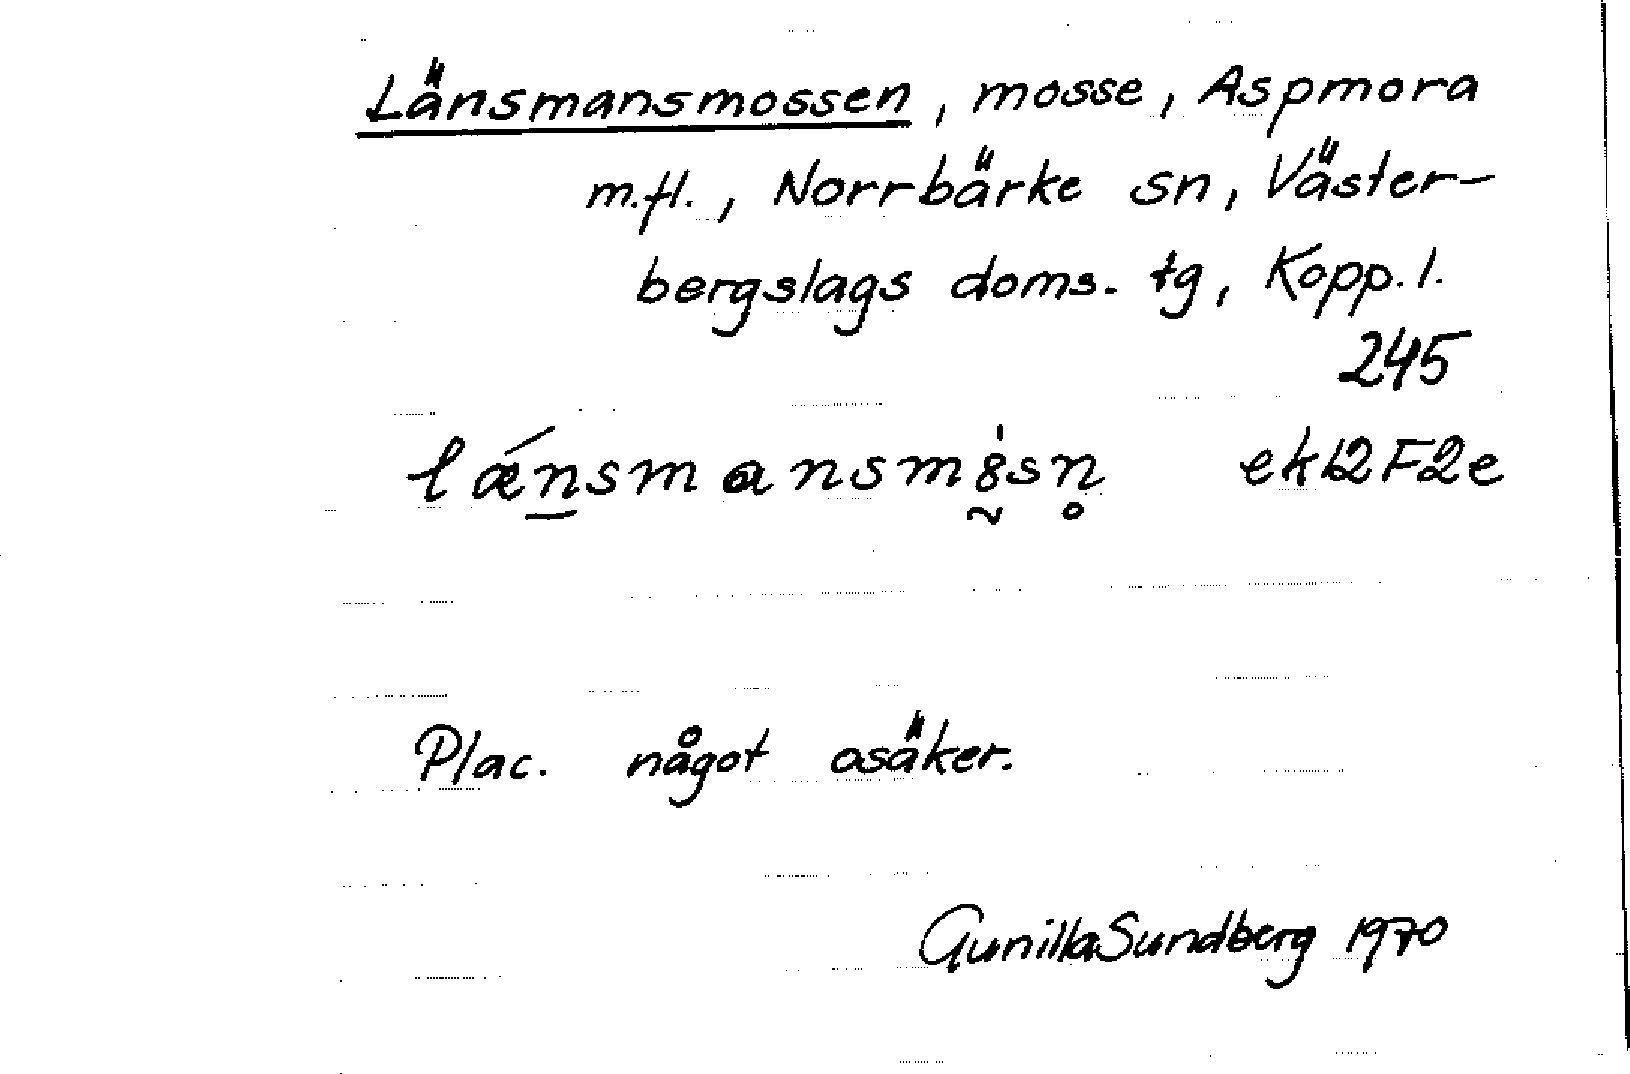 Länsmansmossen, mosse, Aspmora
m.fl., Norrbärke sn, Väster-
bergslags doms. tg, Kopp. l.
245
lǽn̲smansmȣ̰̍sn̥ ek12F2e
Plac. något osäker.
Gunilla Sundberg 1970